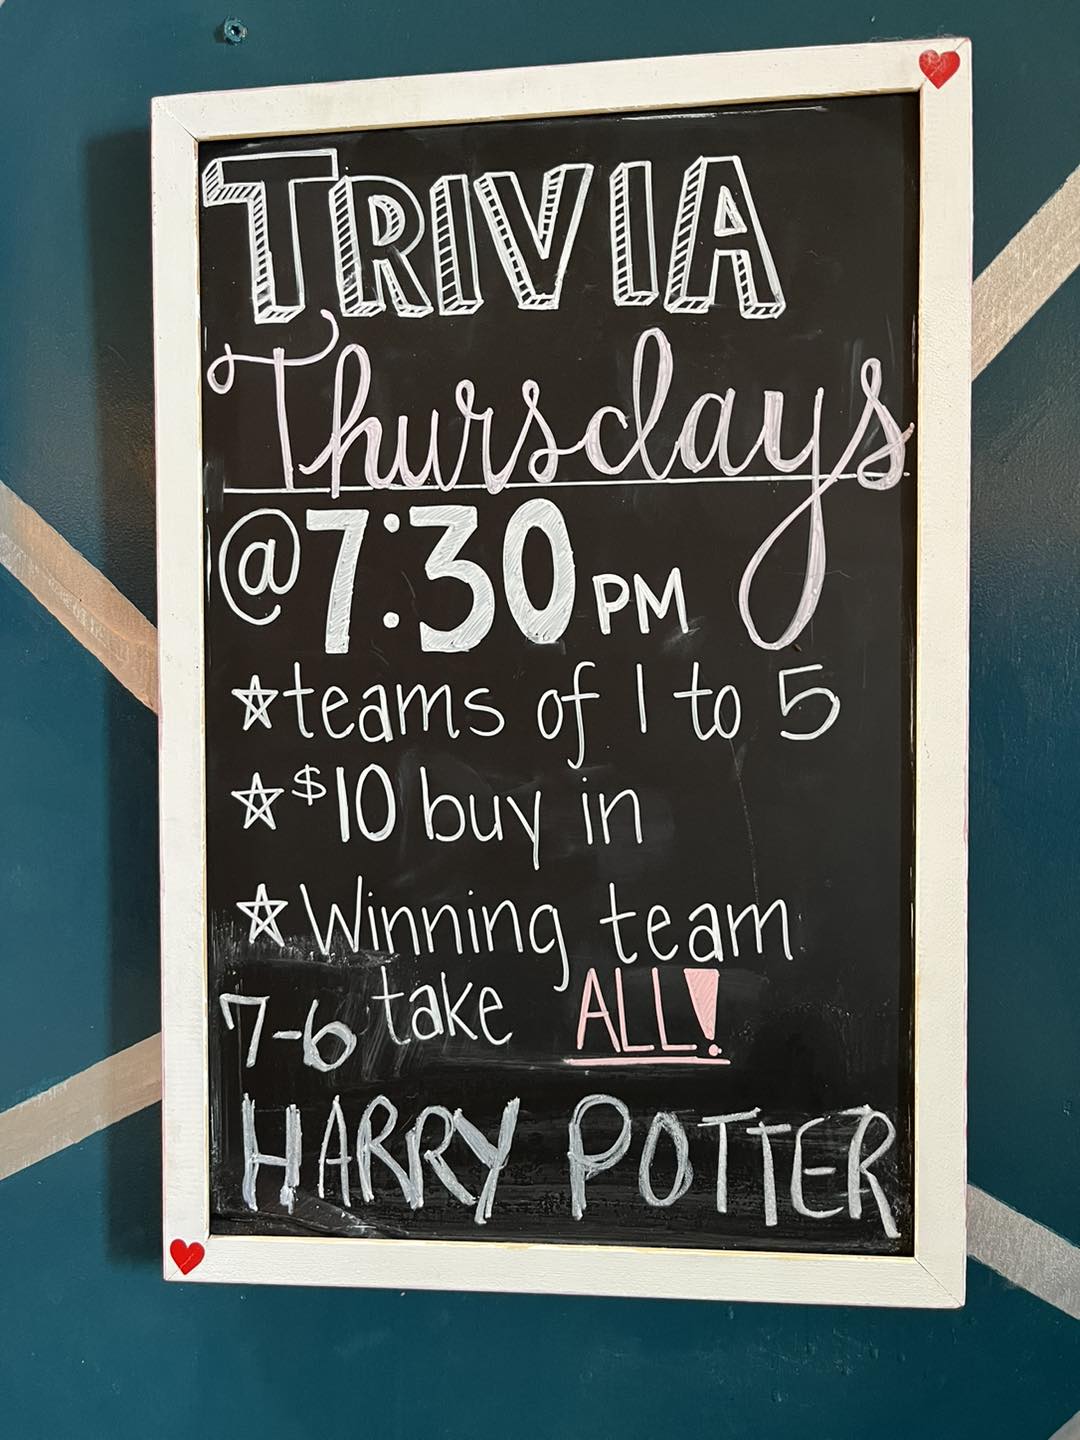 TRIVIA
Thursdays
@7:30 PM
☆teams of 1 to 5
☆$10 buy in
☆Winning team
take ALL!
7-6
HARRY POTTER